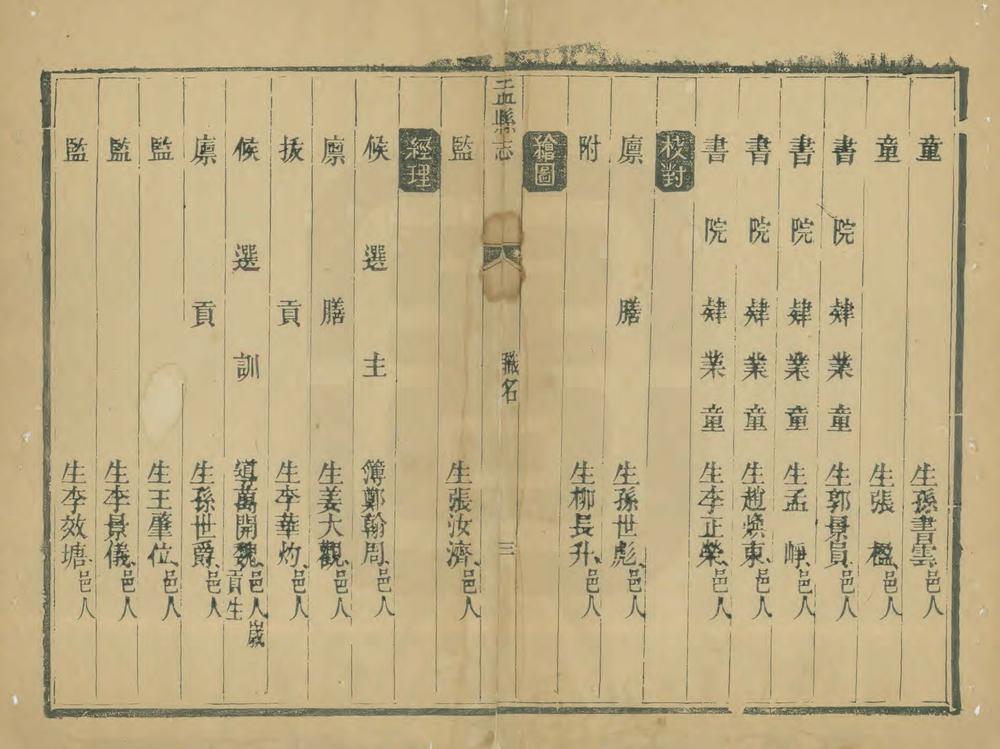 童生孫書雲邑人
童生張楹邑人
書院肄業童生郭景員邑人
書院肄業童生孟崢邑人
書院肄業童生趙煥東邑人
書院肄業童生李正榮邑人
校對
廩膳生孫世彪邑人
附生柳長升邑人
繪圖
孟縣志
職名
三
監生張汝濟邑人
經理
候選主簿鄭翰周邑人
廩膳生姜大觀邑人
拔貢生李華灼邑人
候選訓導萬開魏邑人歲貢生
廩貢生孫世爵邑人
監生王肇位邑人
監生李景儀邑人
監生李效塘邑人